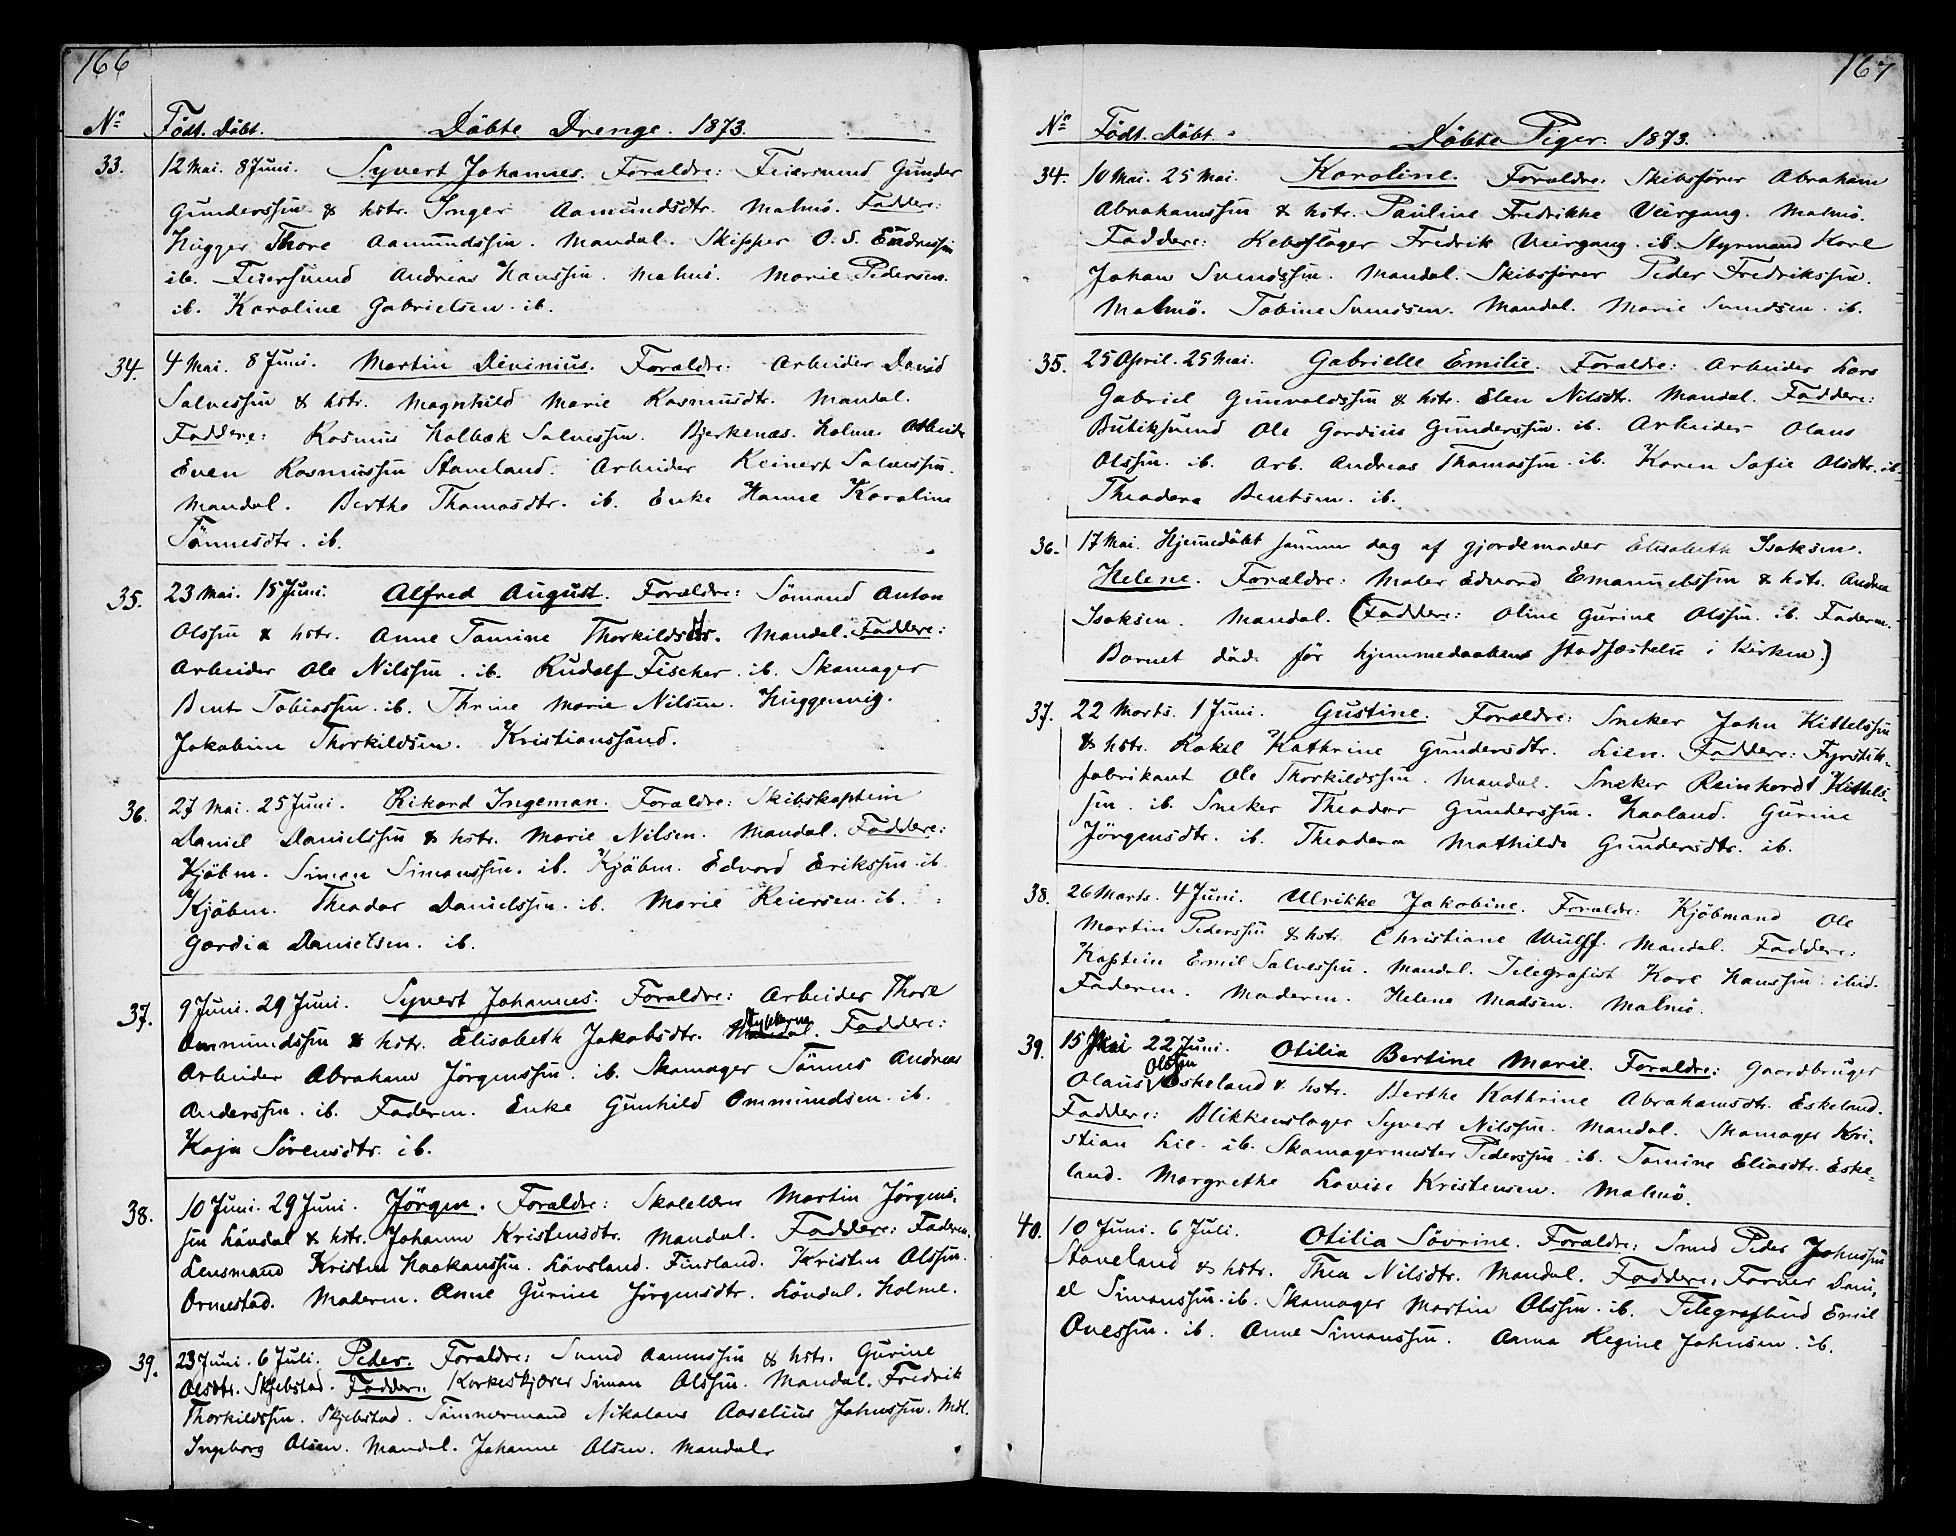 166
No Födt. Döbt. Döbte Drenge. 1873.
33. 12 Mai. 8 Juni. Syvert Johannes. Foraldre: Feiersund Gunder
Gunderssøn & hstr. Inger Aamundsdtr. Malmö. Faddere:
Hugger Thore Aamundssøn. Mandal. Skipper O. S. Endressøn
ib. Feiersund Andreas Hanssøn. Malmö. Marie Pedersen.
ib. Karoline Gabrielsen. ib.
34. 4 Mai. 8 Juni. Martin Divinius. Foraldre: Arbeider David
Salvessøn & hstr. Magnhild Marie Rasmusdtr. Mandal.
Faddere: Rasmus Holbæk Salvessøn. Bjerkenæs. Holme. Arbeider
Even Rasmussøn Staveland. Arbeider Reinert Salvessøn.
Mandal. Berthe Thomasdtr. ib. Enke Hanne Karoline
Tönnesdtr. ib.
35. 23 Mai. 15 Juni. Alfred August. Foraldre: Sömand Anton
Olssøn & hstr. Anne Tomine Thorkildsdtr. Mandal. Faddere:
Arbeider Ole Nilssøn. ib. Rudolf Fischer. ib. Skomager
Bent Tobiassøn. ib. Thrine Marie Nilsen. Huggenvig.
Jakobine Thorkildsen. Kristianssand.
36. 27 Mai. 25 Juni. Rikard Ingeman. Foraldre: Skibskaptein
Daniel Danielssøn & hstr. Marie Nilsen. Mandal. Faddere:
Kjöbm. Simon Simonssøn. ib. Kjöbm. Edvard Erikssøn. ib.
Kjöbm. Theodor Danielssøn. ib. Marie Reiersen. ib.
Gordia Danielsen. ib.
37. 9 Juni. 29 Juni. Syvert Johannes. Foraldre: Arbeider Thore
Ommundssøn & hstr. Elisabeth Jakobsdtr. Mandal. Faddere:
Arbeider Abraham Jörgenssøn. ib. Skomager Tönnes Andreas
Anderssøn. ib. Faderen. Enke Gunhild Ommundsen. ib.
Kaja Sörensdtr. ib.
38. 10 Juni. 29 Juni. Jörgen. Foraldre: Skolelærer Martin Jörgens-
søn Löndal & hstr. Johanne Kristensdtr. Mandal. Faddere: Faderen.
Lensmand Kristen Haakonssøn. Lövsland. Finsland. Kristen Olssøn.
Ormestad. Moderen. Anne Gurine Jörgensdtr. Löndal. Holme.
39. 23 Juni. 6 Juli. Peder. Foraldre: Svend Aanenssøn & hstr. Gurine
Olsdtr. Skjebstad. Faddere: Korkeskjærer Simon Olssøn. Mandal. Fredrik
Thorkildssøn. Skjebstad. Tömmermand Nikolaus Aaselius Johnssøn. Mdl.
Ingeborg Olsen. Mandal. Johanne Olsen. Mandal.
167
No Födt. Döbt. Döbte Piger. 1873.
34. 10 Mai. 25 Mai. Karoline. Foraldre. Skibsförer Abraham
Abrahamssøn & hstr. Pauline Fredrikke Veirgang. Malmö.
Faddere: Rebslager Fredrik Veirgang. ib. Styrmand Karl
Johan Svendssøn. Mandal. Skibsförer Peder Fredrikssøn.
Malmö. Tobine Svendsen. Mandal. Marie Svendsen. ib.
35. 25 April. 25 Mai. Gabrielle Emilie. Foraldre: Arbeider Lars
Gabriel Gunvaldssøn & hstr. Elen Nilsdtr. Mandal. Faddere:
Butiksvend Ole Gordius Gunderssøn. ib. Arbeider Olaus
Olssøn. ib. Arb. Andreas Thomassøn. ib. Karen Sofie Olsdtr. ib.
Theodora Bentsen. ib.
36. 17 Mai. Hjemmedöbt samme dag af gjordemoder Elisabeth Isaksen.
Helene. Forældre: Maler Edvard Emanuelssøn & hstr. Andrea
Isaksen. Mandal. (Faddere: Oline Gurine Olssøn. ib. Faderen.
Barnet död för hjemmedaabens stadfæstelse i kirken.)
37. 22 Marts. 1 Juni. Gustine. Foraldre: Sneker John Kittelssøn
& hstr. Rakel Kathrine Gundersdtr. Lien. Faddere: Fyrstik-
fabrikant Ole Thorkildssøn. Mandal. Sneker Reinhardt Kittels-
søn. ib. Sneker Theodor Gunderssøn. Haaland. Gurine
Jörgensdtr. ib. Theodora Mathilde Gundersdtr. ib.
38. 26 Marts. 4 Juni. Ulrikke Jakobine. Foraldre: Kjöbmand Ole
Martin Pederssøn & hstr. Christiane Wulff. Mandal. Faddere:
Kaptein Emil Salvessøn. Mandal. Telegrafist Karl Hanssøn. ibid.
Faderen. Moderen. Helene Madsen. Malmö.
39. 15 Mai 22 Juni. Otilia Bertine Marie. Foraldre: Gaardbruger
Olaus Olssøn Eskeland & hstr. Berthe Kathrine Abrahamsdtr. Eskeland.
Faddere: Blikkenslager Syvert Nilssøn. Mandal. Skomager Kri-
stian Lie. ib. Skomagermester Pederssøn. ib. Tomine Eliasdtr. Eske-
land. Margrethe Lovise Kristensen. Malmö.
40. 10 Juni. 6 Juli. Otilia Sövrine. Foraldre: Smed Peder Johnssøn
Staveland & hstr. Thea Nilsdtr. Mandal. Faddere: Farver Dani-
el Simonssøn. ib. Skomager Martin Olssøn. ib. Telegrafbud Emil
Ovessøn. ib. Anne Simonssøn. Anna Regine Johnsen. ib.